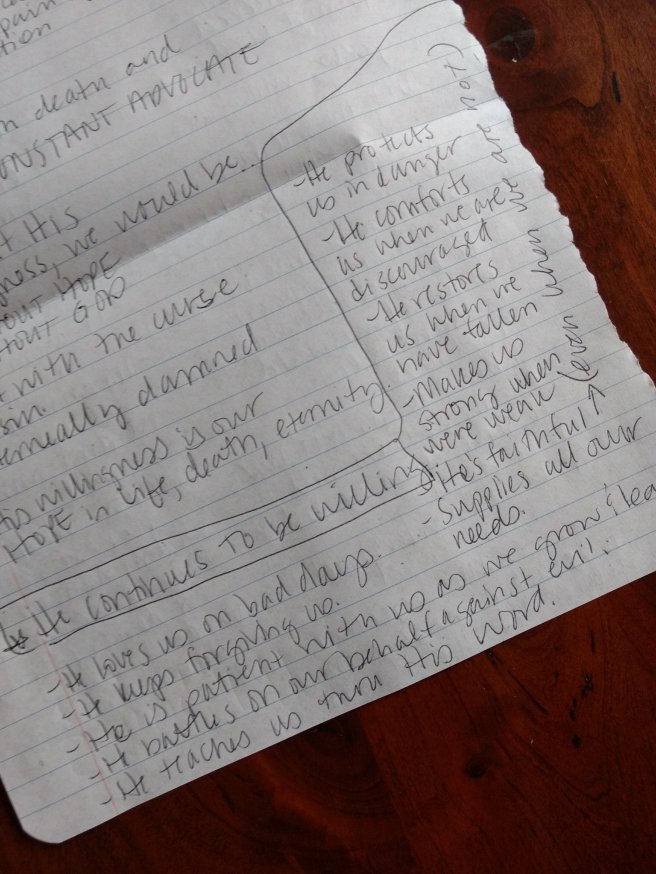 pain
tion
death and
CONSTANT ADVOCATE
His
we would be...
HOPE
GOD
with the curse
sin.
eternally damned
His willingness is our
HOPE in life, death, eternity.
* He continues to be willing
- He loves us on bad days.
- He keeps forgiving us.
- He is patient with us as we grow &
- He battles on our behalf against evil.
- He teaches us thru His Word.
- He protects
us in danger
- He comforts
us when we are
discouraged
- He restores
us when we
have fallen
- Makes us
strong when
were weak
- He's faithful ↑
(even when we are not)
- Supplies all our
needs.